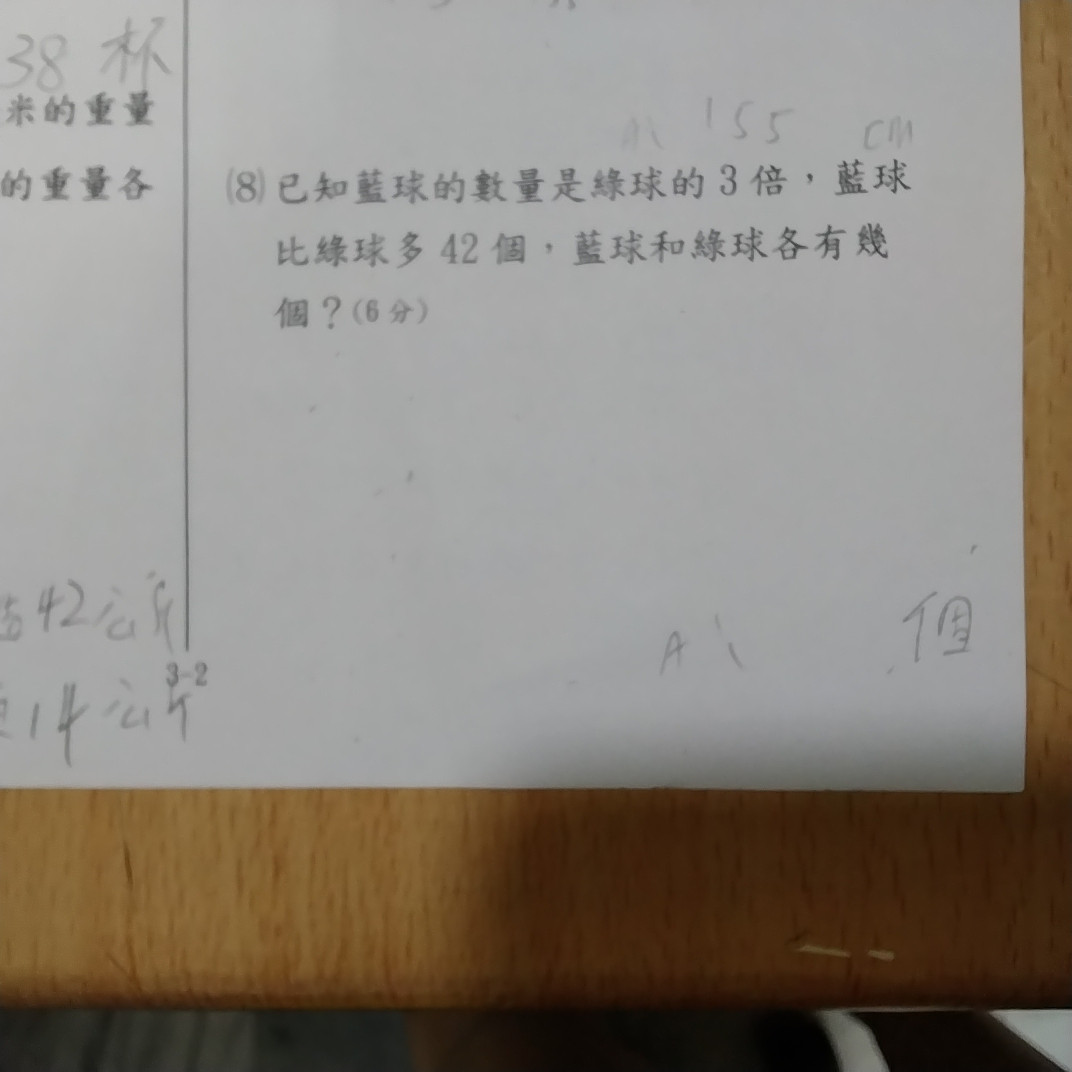 38 杯
米的重量
的重量各
42公斤
3-2
14公斤
155 cm
⑻已知藍球的數量是綠球的3倍，藍球
比綠球多42個，藍球和綠球各有幾
個？(6分)
A: 個